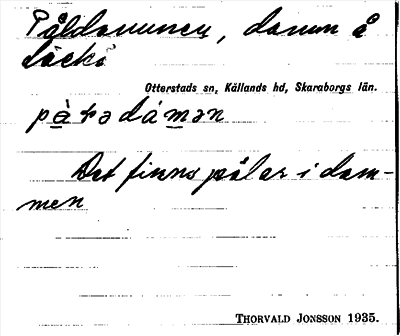 Påldammen, damm å
Läckö
Otterstads sn, Kållands hd, Skaraborgs län.
Det finns pålar i dam-
men
THORVALD JONSSON 1935.